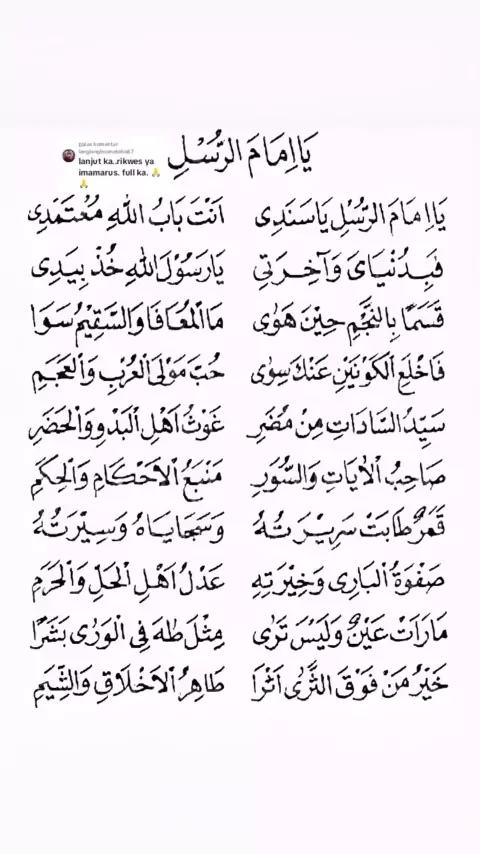 يَا اِمَامَ الرُّسْلِ
balas komentar
lanjut ka..rikwes ya
imamarus. full ka. 🙏
🙏
يَا اِمَامَ الرُّسْلِ يَاسَنَدِى اَنْتَ بَابُ اللّٰهِ مُعْتَمَدِى
فَبِدُنْيَاىَ وَآخِرَتِى يَارَسُوْلَ اللّٰهِ خُذْ بِيَدِى
قَسَمًا بِالنَّجْمِ حِيْنَ هَوٰى مَاالْمُعَافَا وَالسَّقِيْمُ سَوَا
فَاخْلَعِ الْكَوْنَيْنِ عَنْكَ سِوٰى حُبَّ مَوْلَى الْعُرْبِ وَالْعَجَمِ
سَيِّدُ السَّادَاتِ مِنْ مُضَرِ غَوْثُ اَهْلِ الْبَدْوِ وَالْحَضَرِ
صَاحِبُ الْاٰيَاتِ وَالسُّوَرِ مَنْبَعُ الْاَحْكَامِ وَالْحِكَمِ
قَمَرٌ طَابَتْ سَرِيْرَتُهُ وَسَجَايَاهُ وَسِيْرَتُهُ
صَفْوَةُ الْبَارِى وَخِيْرَتِهِ عَدْلُ اَهْلِ الْحِلِّ وَالْحَرَمِ
مَارَاَتْ عَيْنٌ وَلَيْسَ تَرٰى مِثْلَ طٰهَ فِى الْوَرٰى بَشَرًا
خَيْرُ مَنْ فَوْقَ الثَّرٰى اَثَرًا طَاهِرُ الْاَخْلَاقِ وَالشِّيَمِ